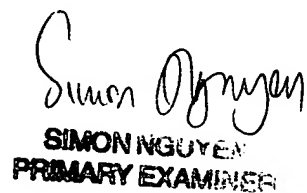 Simon Nguyen
SIMON NGUYEN
PRIMARY EXAMINER